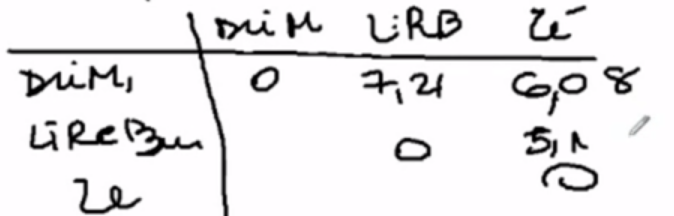 DriM LiRB Ze
DriM, 0 7,21 6,08
LiReBru 0 5,1
Ze 0